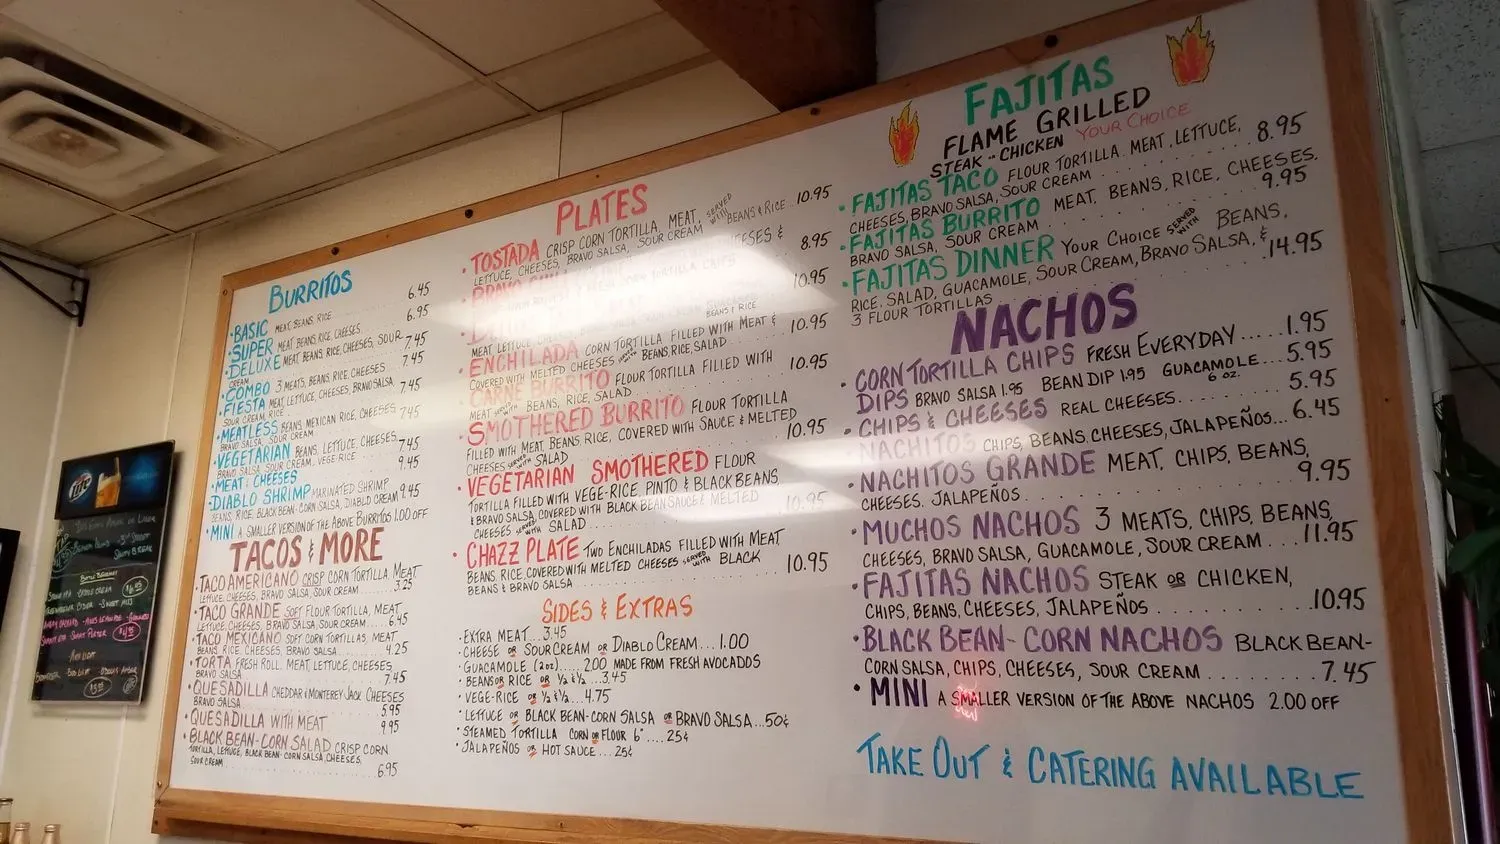 BURRITOS
• BASIC MEAT, BEANS, RICE 6.45
• SUPER MEAT, BEANS, RICE, CHEESES 6.95
• DELUXE MEAT, BEANS, RICE, CHEESES, SOUR 7.45
CREAM
• COMBO 3 MEATS, BEANS, RICE, CHEESES 7.45
• FIESTA MEAT, LETTUCE, CHEESES, BRAVO SALSA, 7.45
SOUR CREAM, RICE
• MEATLESS BEANS, MEXICAN RICE, CHEESES, 7.45
BRAVO SALSA, SOUR CREAM
• VEGETARIAN BEANS, LETTUCE, CHEESES, 7.45
BRAVO SALSA, SOUR CREAM, VEGE-RICE
• MEAT & CHEESES 9.45
• DIABLO SHRIMP MARINATED SHRIMP, 9.45
BEANS, RICE, BLACK BEAN-CORN SALSA, DIABLO CREAM
• MINI A SMALLER VERSION OF THE ABOVE BURRITOS 1.00 OFF
TACOS & MORE
• TACO AMERICANO CRISP CORN TORTILLA, MEAT
LETTUCE, CHEESES, BRAVO SALSA, SOUR CREAM ..... 3.25
• TACO GRANDE SOFT FLOUR TORTILLA, MEAT,
LETTUCE, CHEESES, BRAVO SALSA, SOUR CREAM .... 6.45
• TACO MEXICANO SOFT CORN TORTILLAS, MEAT
BEANS, RICE, CHEESES, BRAVO SALSA 4.25
• TORTA FRESH ROLL, MEAT, LETTUCE, CHEESES,
BRAVO SALSA 7.45
• QUESADILLA CHEDDAR & MONTEREY JACK CHEESES
BRAVO SALSA 5.95
• QUESADILLA WITH MEAT 9.95
• BLACK BEAN-CORN SALAD CRISP CORN
TORTILLA, LETTUCE, BLACK BEAN-CORN SALSA, CHEESES,
SOUR CREAM 6.95
PLATES
• TOSTADA CRISP CORN TORTILLA, MEAT, SERVED WITH BEANS & RICE .. 10.95
LETTUCE, CHEESES, BRAVO SALSA, SOUR CREAM
CHEESES & 8.95
TORTILLA CHIPS
10.95
MEAT, LETTUCE BEANS & RICE
• ENCHILADA CORN TORTILLA FILLED WITH MEAT & 10.95
COVERED WITH MELTED CHEESES SERVED WITH BEANS, RICE, SALAD
BURRITO FLOUR TORTILLA FILLED WITH 10.95
MEAT SERVED WITH BEANS, RICE, SALAD
• SMOTHERED BURRITO FLOUR TORTILLA
FILLED WITH MEAT, BEANS, RICE, COVERED WITH SAUCE & MELTED 10.95
CHEESES SERVED WITH SALAD
• VEGETARIAN SMOTHERED FLOUR
TORTILLA FILLED WITH VEGE-RICE, PINTO & BLACK BEANS,
& BRAVO SALSA, COVERED WITH BLACK BEAN SAUCE & MELTED 10.95
CHEESES SERVED WITH SALAD
• CHAZZ PLATE TWO ENCHILADAS FILLED WITH MEAT
BEANS, RICE, COVERED WITH MELTED CHEESES SERVED WITH BLACK 10.95
BEANS & BRAVO SALSA
SIDES & EXTRAS
• EXTRA MEAT ... 3.45
• CHEESE OR SOUR CREAM OR DIABLO CREAM ... 1.00
• GUACAMOLE (2oz) ..... 2.00 MADE FROM FRESH AVOCADOS
• BEANS OR RICE OR ½ & ½ ... 3.45
• VEGE-RICE OR ½ & ½ ... 4.75
• LETTUCE OR BLACK BEAN-CORN SALSA OR BRAVO SALSA ... 50¢
• STEAMED TORTILLA CORN OR FLOUR 6" .... 25¢
• JALAPEÑOS OR HOT SAUCE ... 25¢
FAJITAS
FLAME GRILLED
STEAK OR CHICKEN YOUR CHOICE
• FAJITAS TACO FLOUR TORTILLA, MEAT, LETTUCE, 8.95
CHEESES, BRAVO SALSA, SOUR CREAM
• FAJITAS BURRITO MEAT, BEANS, RICE, CHEESES,
BRAVO SALSA, SOUR CREAM 9.95
• FAJITAS DINNER YOUR CHOICE SERVED WITH BEANS,
RICE, SALAD, GUACAMOLE, SOUR CREAM, BRAVO SALSA, & 14.95
3 FLOUR TORTILLAS
NACHOS
• CORN TORTILLA CHIPS FRESH EVERYDAY .... 1.95
DIPS BRAVO SALSA 1.95 BEAN DIP 1.95 GUACAMOLE ... 5.95
6 OZ.
• CHIPS & CHEESES REAL CHEESES 5.95
• NACHITOS CHIPS, BEANS, CHEESES, JALAPEÑOS ... 6.45
• NACHITOS GRANDE MEAT, CHIPS, BEANS,
CHEESES, JALAPEÑOS 9.95
• MUCHOS NACHOS 3 MEATS, CHIPS, BEANS,
CHEESES, BRAVO SALSA, GUACAMOLE, SOUR CREAM ... 11.95
• FAJITAS NACHOS STEAK OR CHICKEN,
CHIPS, BEANS, CHEESES, JALAPEÑOS 10.95
• BLACK BEAN-CORN NACHOS BLACK BEAN-
CORN SALSA, CHIPS, CHEESES, SOUR CREAM 7.45
• MINI A SMALLER VERSION OF THE ABOVE NACHOS 2.00 OFF
TAKE OUT & CATERING AVAILABLE
Lite